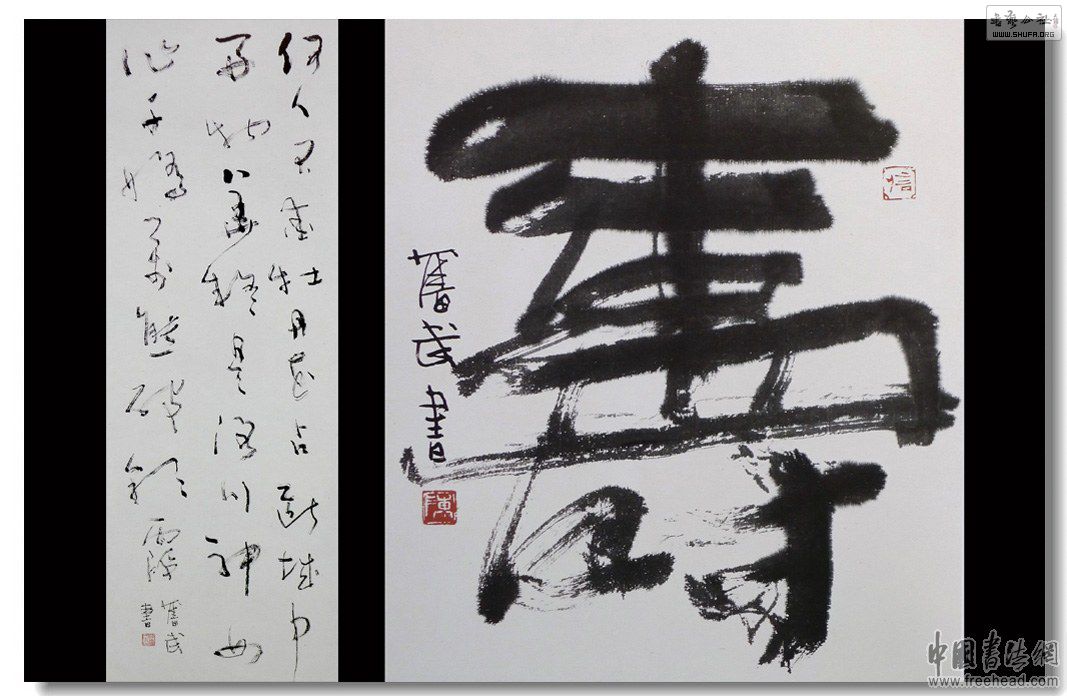 何人不愛牡丹花占斷城中
好物華疑是洛川神女
作千嬌萬態破朝霞
書
壽
書
WWW.SHUFA.ORG
中国書法網
www.freehead.com